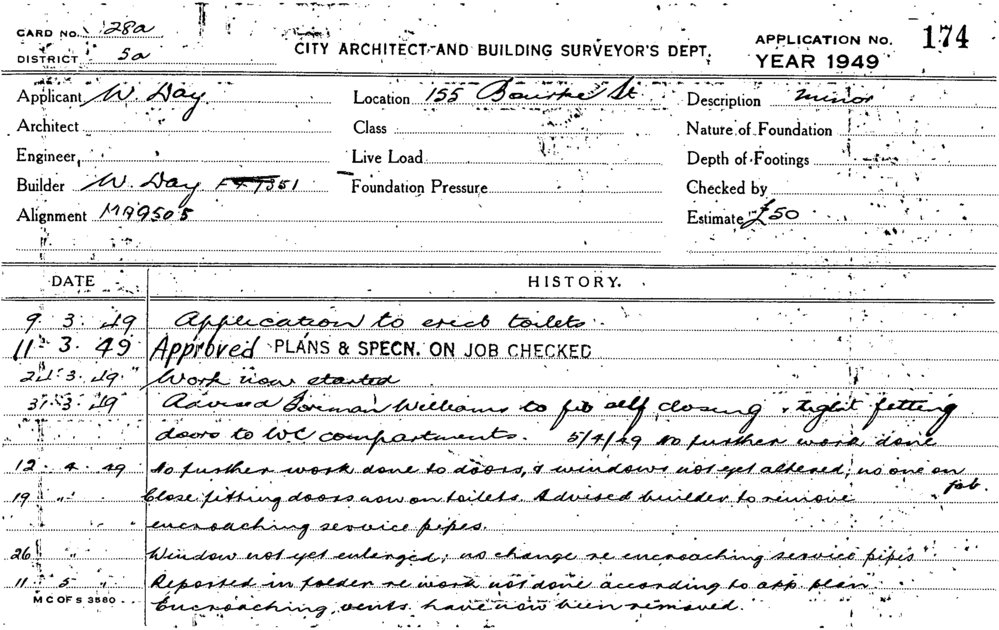 CARD NO. 28a
DISTRICT 5a
CITY ARCHITECT AND BUILDING SURVEYOR'S DEPT.
APPLICATION No. 174
YEAR 1949
Applicant W. Day Location 155 Bourke St Description minor
Architect Class Nature of Foundation
Engineer Live Load Depth of Footings
Builder W. Day Foundation Pressure Checked by
Alignment MA9505 Estimate £50
DATE HISTORY.
9 3 49 Application to erect toilets.
11 3 49 Approved PLANS & SPECN. ON JOB CHECKED
24 3 49 Work now started
31 3 49 Advised Williams to fit self closing & tight fitting
doors to WC compartments. 5/4/49 No further work done
12 4 49 No further work done to doors, & windows not yet altered, no one on job.
19 " Close fitting doors now on toilets. Advised builder to remove
encroaching service pipes.
26 " Window not yet enlarged; no change re encroaching service pipes
11 5 " Reported in folder re work not done according to app. plan
M C OF S 3580 Encroaching vents have now been removed.